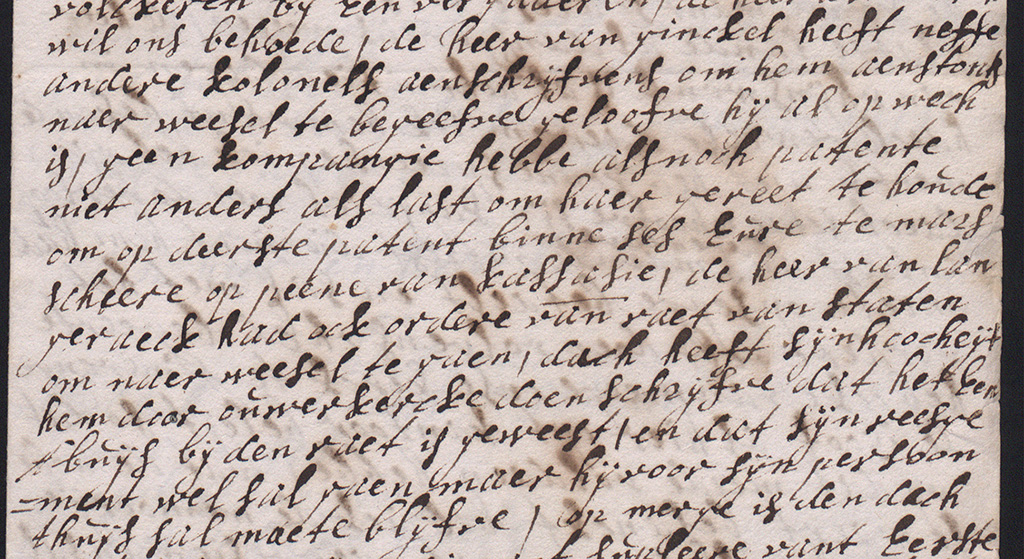 volckeren by een vergaderen, de heer
wil ons behoede, de heer van ginckel heeft neffe
andere kolonels aenschryfvens om hem aenstonts
naer weesel te begeefve geloofve hy al op wech
is, geen kompangie hebbe alsnoch patente
niet anders als last om haer gereet te houde
om op deerste patent binne ses eure te mars
scheere op peene van kassasie, de heer van lan
geraeck had ock ordere van raet van staten
om naer weesel te gaen, dach heeft synhoocheyt
hem door ouwerkercke doen schryfve dat het een
abuys by den raet is geweest, en dat syn reesge
=ment wel sal gaen maer hy voor syn persoon
thuys sal moete blyfve, op merge is den dach
vant eerste